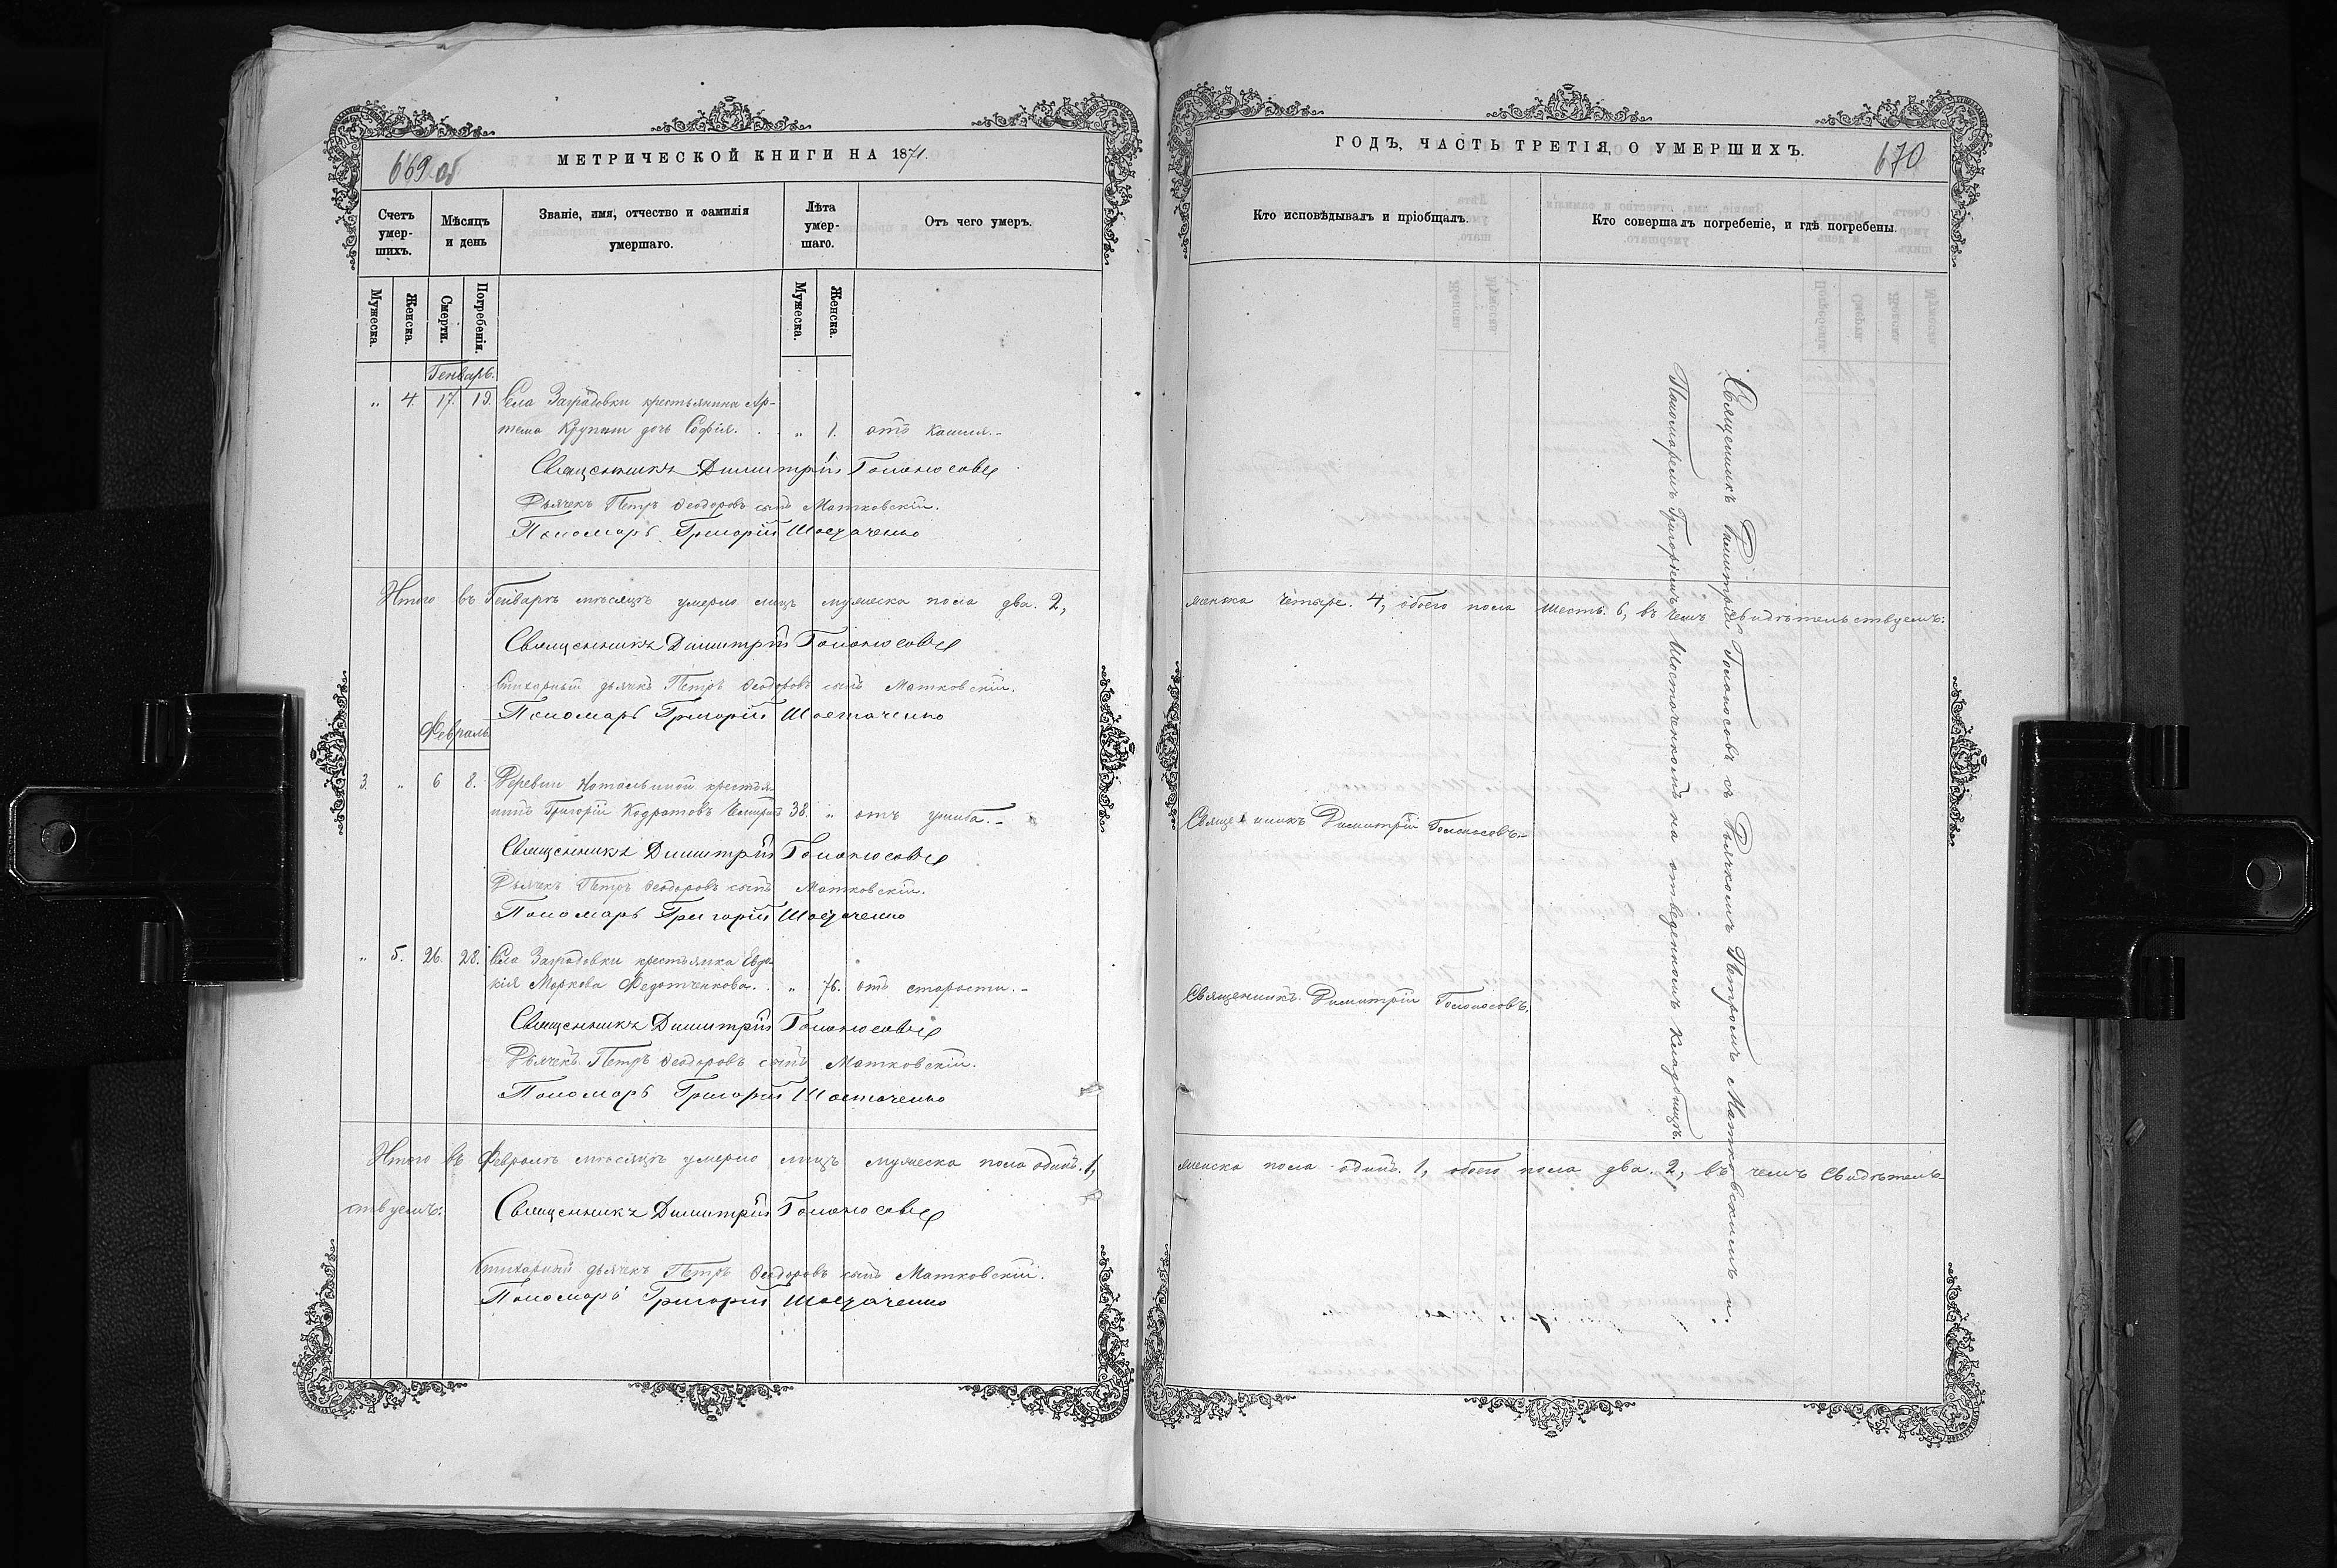 669 об
МЕТРИЧЕСКОЙ КНИГИ НА 1871.
Счетъ умер-шихъ.
Мѣсяцъ и день
Званіе, имя, отчество и фамилія умершаго.
Лѣта умер-шаго.
Отъ чего умеръ.
Мужеска.
Женска.
Смерти.
Погребенія.
Мужеска.
Женска.
Генварь.
" 4. 17. 19. Села Заградовки крестьянина Ар-
тема дочь Софія. " 1. отъ кашля.-
Священникъ Димитрій Голоносовъ
Дьячекъ Петръ Ѳеодоровъ сынъ Матковскій.
Пономарь Григорій Шостаченко
Итого въ Генварѣ мѣсяцѣ умерло лицъ мужеска пола два. 2,
Священникъ Димитрій Голоносовъ
Стихарный дьячекъ Петръ Ѳеодоровъ сынъ Матковскій.
Пономарь Григорій Шостаченко
Февраль
3. " 6 8. Деревни Натальиной крестья-
нинъ Григорій Кодратовъ 38. " отъ ушиба.-
Священникъ Димитрій Голоносовъ
Дьячекъ Петръ Ѳеодоровъ сынъ Матковскій.
Пономарь Григорій Шостаченко
" 5. 26. 28. Села Заградовки крестьянка Евдо-
кія Маркова Федотченкова. " 76. отъ старости.-
Священникъ Димитрій Голоносовъ
Дьячекъ Петръ Ѳеодоровъ сынъ Матковскій.
Пономарь Григорій Шостаченко
Итого въ Февралѣ мѣсяцѣ умерло лицъ мужеска пола одинъ. 1,
ствуемъ:
Священникъ Димитрій Голоносовъ
Стихарный дьячекъ Петръ Ѳеодоровъ сынъ Матковскій.
Пономарь Григорій Шостаченко
ГОДЪ, ЧАСТЬ ТРЕТІЯ, О УМЕРШИХЪ.
670
Кто исповѣдывалъ и пріобщалъ.
Кто совершалъ погребеніе, и гдѣ погребены.
Священникъ Димитрій Голоносовъ съ Дьячкомъ Петромъ Матковскимъ и
Пономаремъ Григоріемъ Шостаченкомъ на отведенномъ кладбищѣ.
женска четыре. 4, обоего пола шесть. 6, въ чемъ свидѣтельствуемъ:
Священникъ Димитрій Голоносовъ.-
Священникъ Димитрій Голоносовъ.
женска пола одинъ. 1, обоего пола два. 2, въ чемъ свидѣтель-